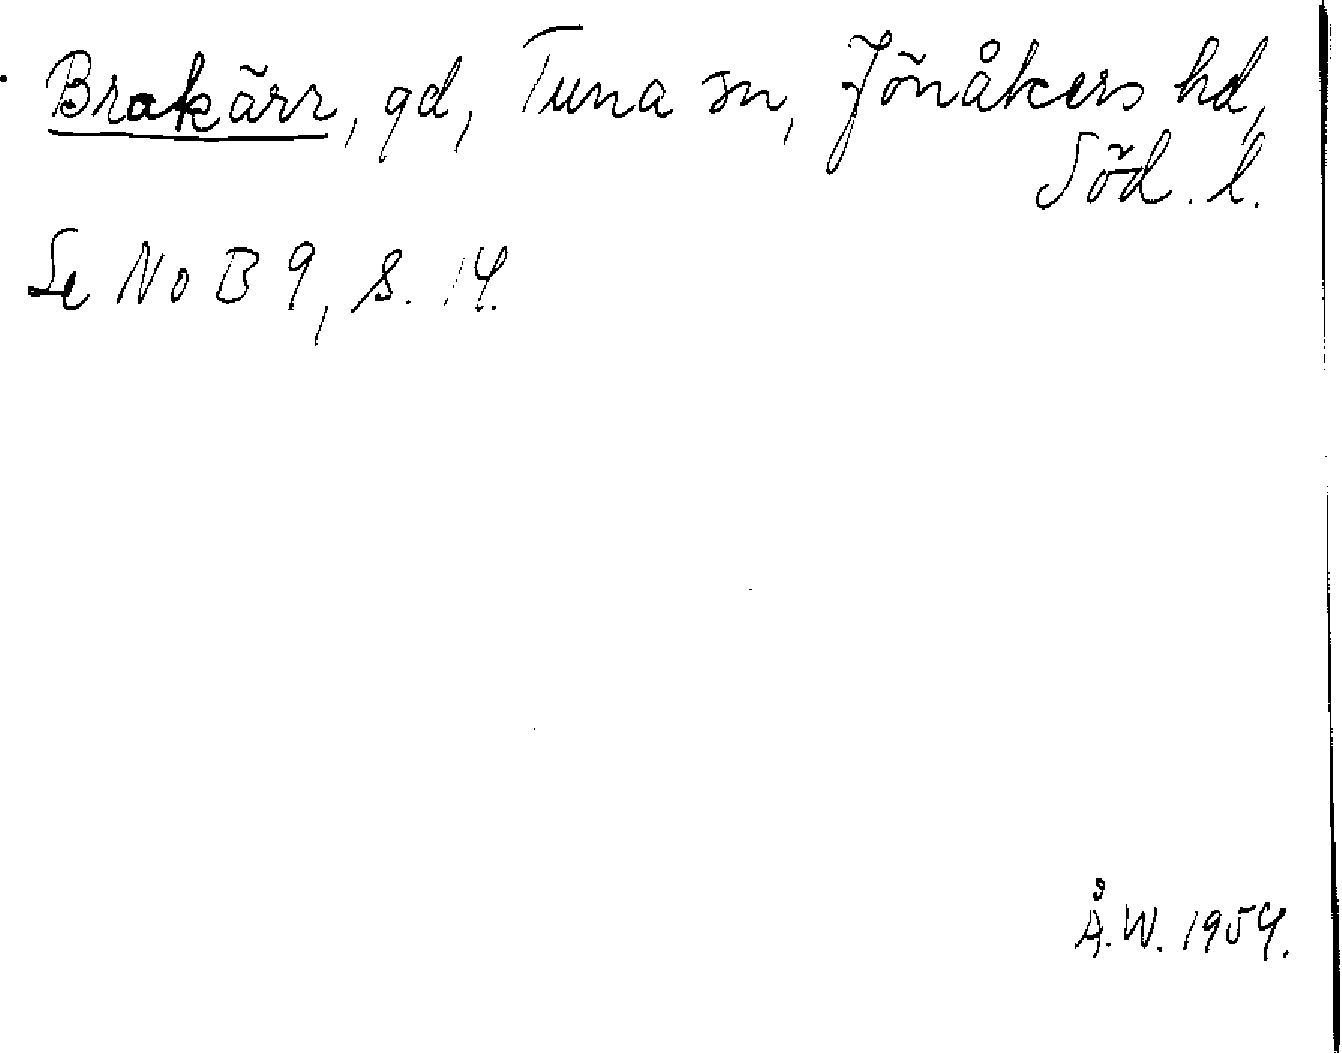 Brakärr, gd, Tuna sn, Jönåkers hd,
Söd. l.
Se NoB 9, s. 14.
Å.W. 1954.